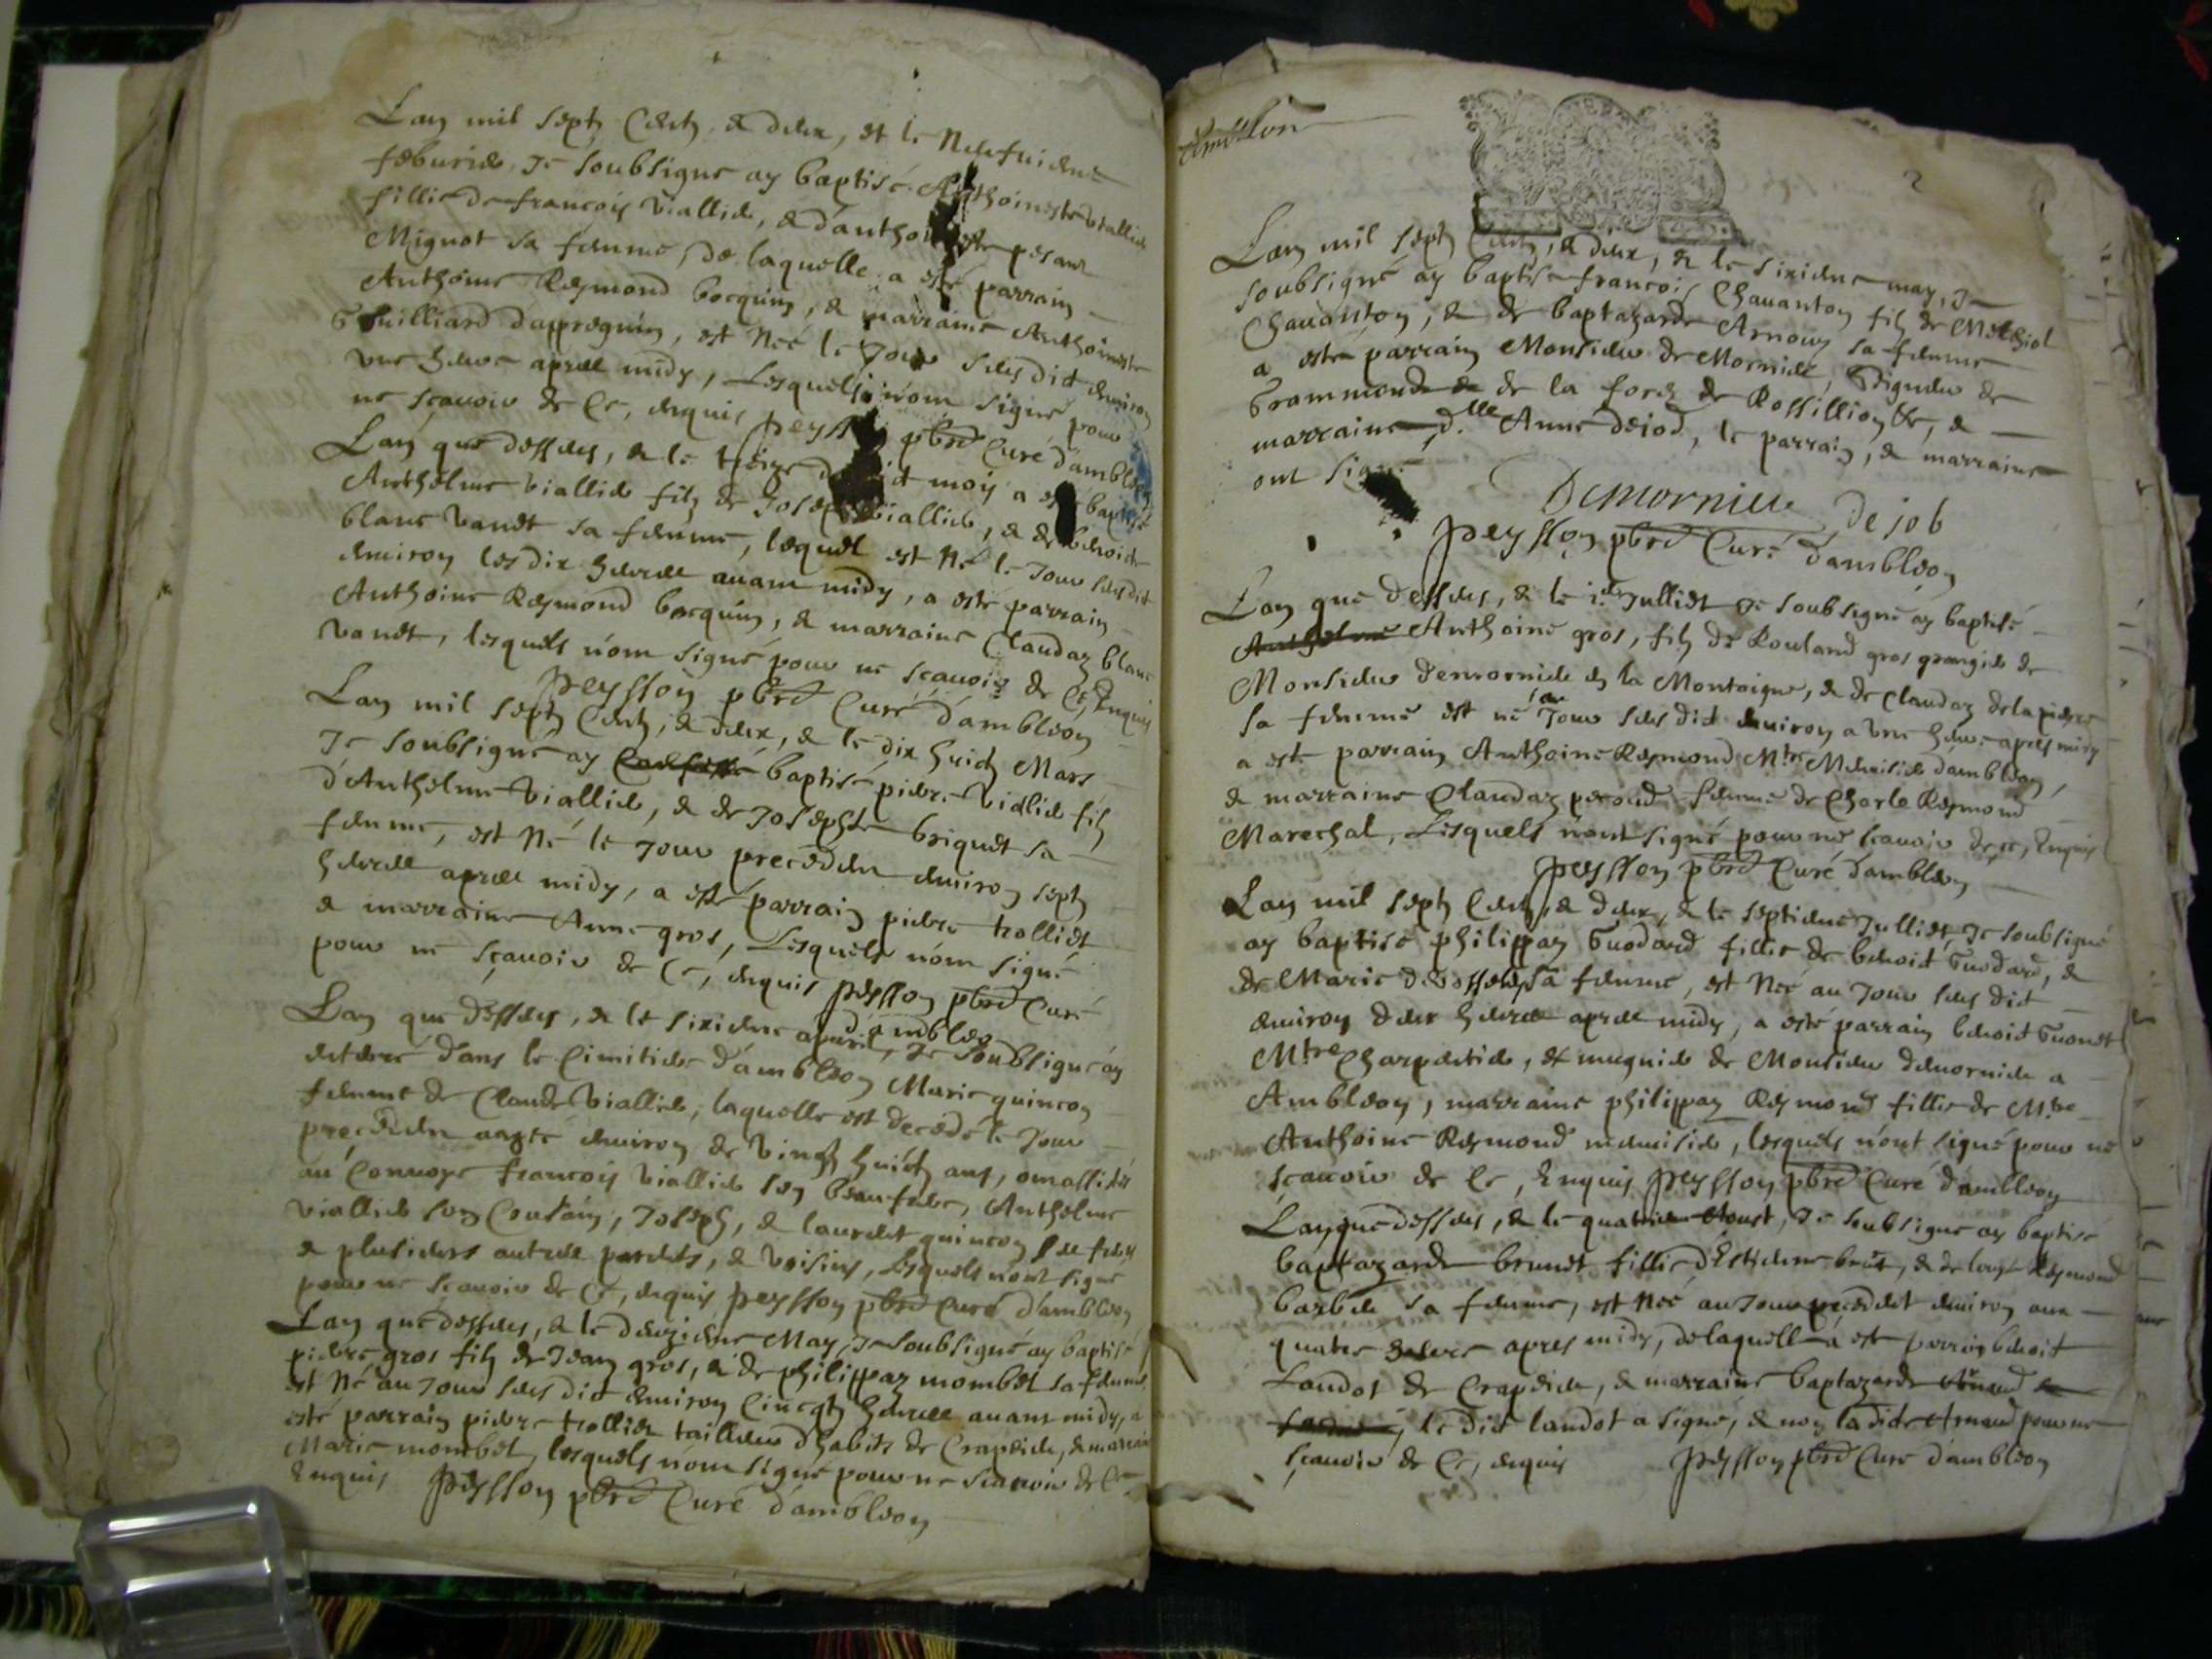 Lan mil sept Cents, & deux, et le Neufuieme
feburier, Je soubsigne ay baptisé Anthoineste Viallier
fillie de francois Viallier, & d'antho este pesant
Mignot sa femme, de laquelle a esté parrain
Anthoine Reymond bocquin, & marraine Anthoineste
Guilliard d'appregnin, est Neé le Jour susdit enuiron
vne heure apres midy, Lesquels n'ont signé pour
ne scauoir de Ce, enquis peysson pbre Curé d'ambleon
Lan que dessus, & le treize dudit mois a esté baptisé
Anthelme Viallier filz de Joseph Viallier, & de benoite
blanc Vanet sa femme, lequel est Né le Jour susdit
enuiron les dix heures auant midy, a esté parrain
Anthoine Reymond bocquin, & marraine Claudaz blanc
Vanet, lesquels n'ont signé pour ne scauoir de Ce, Enquis
peysson pbre Curé d'ambleon
Lan mil sept Cents, & deux, & le dix huict Mars
Je soubsigné ay baptisé pierre Viallier filz
d'Anthelme Viallier, & de Josephte briquet sa
femme, est Né le Jour precedent enuiron sept
heures apres midy, a esté parrain pierre trolliet
& marraine Anne gros, Lesquels n'ont signé
pour ne sçauoir de Ce, enquis peysson pbre Curé
d'ambleon
Lan que dessus, & le sixieme apuril, Je soubsigné ay
enterré dans le Cimitiere d'ambleon Marie quincon
femme de Claude Viallier, laquelle est decedé le Jour
precedent aagée enuiron de Vingt huict ans, ont assistés
au Conuoye francois Viallier son beau frere, Anthelme
Viallier son Cousain, Joseph, & laurent quincon ses freres
& plusieurs autres parents, & Voisins, Lesquels n'ont signé
pour ne scauoir de Ce, enquis peysson pbre Curé d'ambleon
Lan que dessus, & le deuzieme May, Je soubsigné ay baptisé
pierre gros filz de Jean gros, & de philippaz mombet sa femme
est Né au Jour susdit enuiron Cincqt heures auant midy, a
esté parrain pierre trolliet tailleur d'habits de Crapeide, & marraine
Marie mombet, lesquels n'ont signé pour ne scauoir de Ce
Enquis peysson pbre Curé d'ambleon
2
Lan mil sept Cents, & deux, & le sixieme may, Je
soubsigné ay baptisé francois Chauanton filz de Melchiol
Chauanton, & de baptazarde Arnoux sa femme
a esté parrain Monsieur de Mornieu, Seigneur de
Grammond de la forez de Rossillion &c, &
marraine, d.lle Anne dejob, le parrain, & marraine
ont signé
Demornieu dejob
peysson pbre Curé d'ambleon
Lan que dessus, & le 1.er Julliet Je soubsigné ay baptisé
Anthelme Anthoine gros, filz de Rouland gros grangier de
Monsieur demornieu en la Montaigne, & de Claudaz delapierre
sa femme est né le Jour susdit enuiron a vne heure apres midy
a esté parrain Anthoine Reymond Mtre Menuisier d'ambleon,
& marraine Claudaz peroud femme de Charle Reymond
Marechal, Lesquels n'ont signé pour ne scauoir de ce, Enquis
peysson pbre Curé d'ambleon
Lan mil sept Cents, & deux, & le septieme Julliet, Je soubsigné
ay baptisé philippaz Guodard fillie de benoit Guodard, &
de Marie sa femme, est Neé au Jour susdit
enuiron deux heures apres midy, a esté parrain benoit Guonet
Mtre Charpentier, & mugnier de Monsieur demornieu a
Ambleon, marraine philippaz Reymond fillie de Mtre
Anthoine Reymond menuisier, lesquels n'ont signé pour ne
sçauoir de Ce, Enquis peysson pbre Curé d'ambleon
Lan que dessus, & le quatrieme Aoust, Je soubsigné ay baptisé
baptazarde brunet fillie d'Estienne brunet, & de Reymond
barbier sa femme, est Neé au Jour precedent enuiron aux
quatre heure apres midy, de laquelle a esté parrain benoit
Landot de Crapeide, & marraine baptazarde Arnaud
le dit landot a signé, & non la dite Arnaud pour ne
sçauoir de Ce, enquis peysson pbre Curé d'ambleon